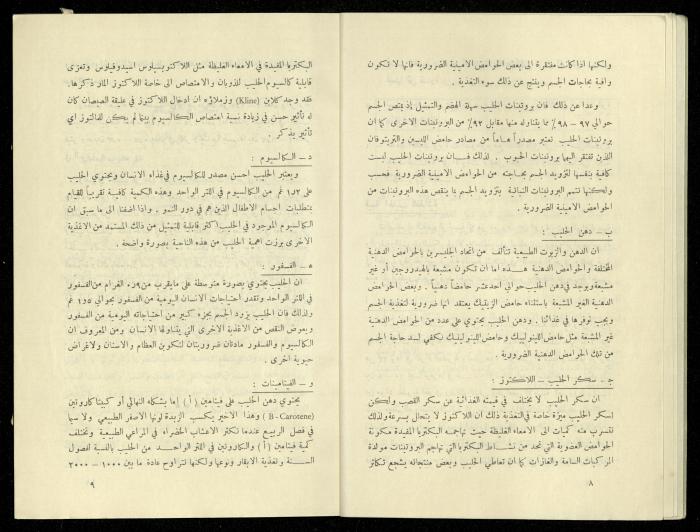 ولكنها اذا كانت مفتقرة الى بعض الحوامض الامينية الضرورية فانها لا تكون
وافية بحاجات الجسم وينتج عن ذلك سوء التغذية .
وعدا عن ذلك فان بروتينات الحليب سهلة الهضم والتمثيل إذ يمتص الجسم
حوالي ٩٧ – ٩٨٪ مما يتناوله منها مقابل ٩٢٪ من البروتينات الاخرى كما ان
بروتينات الحليب تعتبر مصدراً هاماً من مصادر حامض الليسين والتربتوفان
الذين تفتقر اليهما بروتينات الحبوب . لذلك فان بروتينات الحليب ليست
كافية بنفسها لتزويد الجسم بحاجته من الحوامض الامينية الضرورية فحسب
ولكنها تتمم البروتينات النباتية بتزويد الجسم بما ينقص هذه البروتينات من
الحوامض الامينية الضرورية .
ب – دهن الحليب :
ان الدهن والزيوت الطبيعية تتألف من اتحاد الجليسرين بالحوامض الدهنية
المختلفة والحوامض الدهنية هذه اما ان تكون مشبعة بالهيدروجين أو غير
مشبعة ويوجد في دهن الحليب حوالي احد عشر حامضاً دهنياً . وبعض الحوامض
الدهنية الغير المشبعة باستثناء حامض الزيتيك يعتقد أنها ضرورية لتغذية الجسم
ويجب توفرها في غذائنا . ودهن الحليب يحتوي على عدد من الحوامض الدهنية
غير المشبعة مثل حامض اللينوليك وحامض اللينولينيك تكفي لسد حاجة الجسم
من تلك الحوامض الدهنية الضرورية .
ج – سكر الحليب – اللاكتوز :
ان سكر الحليب لا يختلف في قيمته الغذائية عن سكر القصب ولكن
لسكر الحليب ميزة خاصة في التغذية ذلك ان اللاكتوز لا ينحل بسرعة ولذلك
تتسرب منه كميات الى الامعاء الغليظة حيث تهاجمه البكتريا المفيدة مكونة
الحوامض العضوية التي تحد من نشاط البكتريا التي تهاجم البروتينات مولدة
المركبات السامة والغازات كما ان تعاطي الحليب وبعض منتجاته يشجع تكاثر
٨
البكتريا المفيدة في الامعاء الغليظة مثل اللاكتوبسيلوس اسيدوفيلوس وتعزى
قابلية كالسيوم الحليب للذوبان والامتصاص الى خاصة اللاكتوز المار ذكرها.
فقد وجد كلاين (Kline) وزملاؤه ان ادخال اللاكتوز في عليقة الصيصان كان
له تأثير حسن في زيادة نسبة امتصاص الكالسيوم بينما لم يكن للمالتوز اي
تأثير يذكر .
د – الكالسيوم :
ويعتبر الحليب احسن مصدر للكالسيوم في غذاء الانسان ويحتوي الحليب
على ١٫٢ غم من الكالسيوم في اللتر الواحد وهذه الكمية كافية تقريباً للقيام
بمتطلبات اجسام الاطفال الذين هم في دور النمو . واذا اضفنا الى ما سبق ان
الكالسيوم الموجود في الحليب اكثر قابلية للتمثيل من ذلك المستمد من الاغذية
الاخرى برزت اهمية الحليب من هذه الناحية بصورة واضحة .
ه – الفسفور :
ان الحليب يحتوي بصورة متوسطة على ما يقرب من الغرام من الفسفور
في اللتر الواحد وتقدر احتياجات الانسان اليومية من الفسفور بحوالي ١٫٥ غم
ولذلك فان الحليب يزود الجسم بجزء كبير من احتياجاته اليومية من الفسفور
ويعوض النقص من الاغذية الاخرى التي يتناولها الانسان . ومن المعروف ان
الكالسيوم والفسفور مادتان ضروريتان لتكوين العظام والاسنان ولاغراض
حيوية اخرى .
و – الفيتامينات :
يحتوي دهن الحليب على فيتامين ( أ ) إما بشكله النهائي أو كبيتا كاروتين
(B - Carotene) وهذا الاخير يكسب الزبدة لونها الاصفر الطبيعي ولا سيما
في فصل الربيع عندما تكثر الاعشاب الخضراء في المراعي الطبيعية وتختلف
كمية فيتامين ( أ ) والكاروتين في اللتر الواحد من الحليب بالنسبة لفصول
السنة ولتغذية الابقار ونوعها ولكنها تتراوح عادة ما بين ١٠٠٠ – ٣٠٠٠
٩